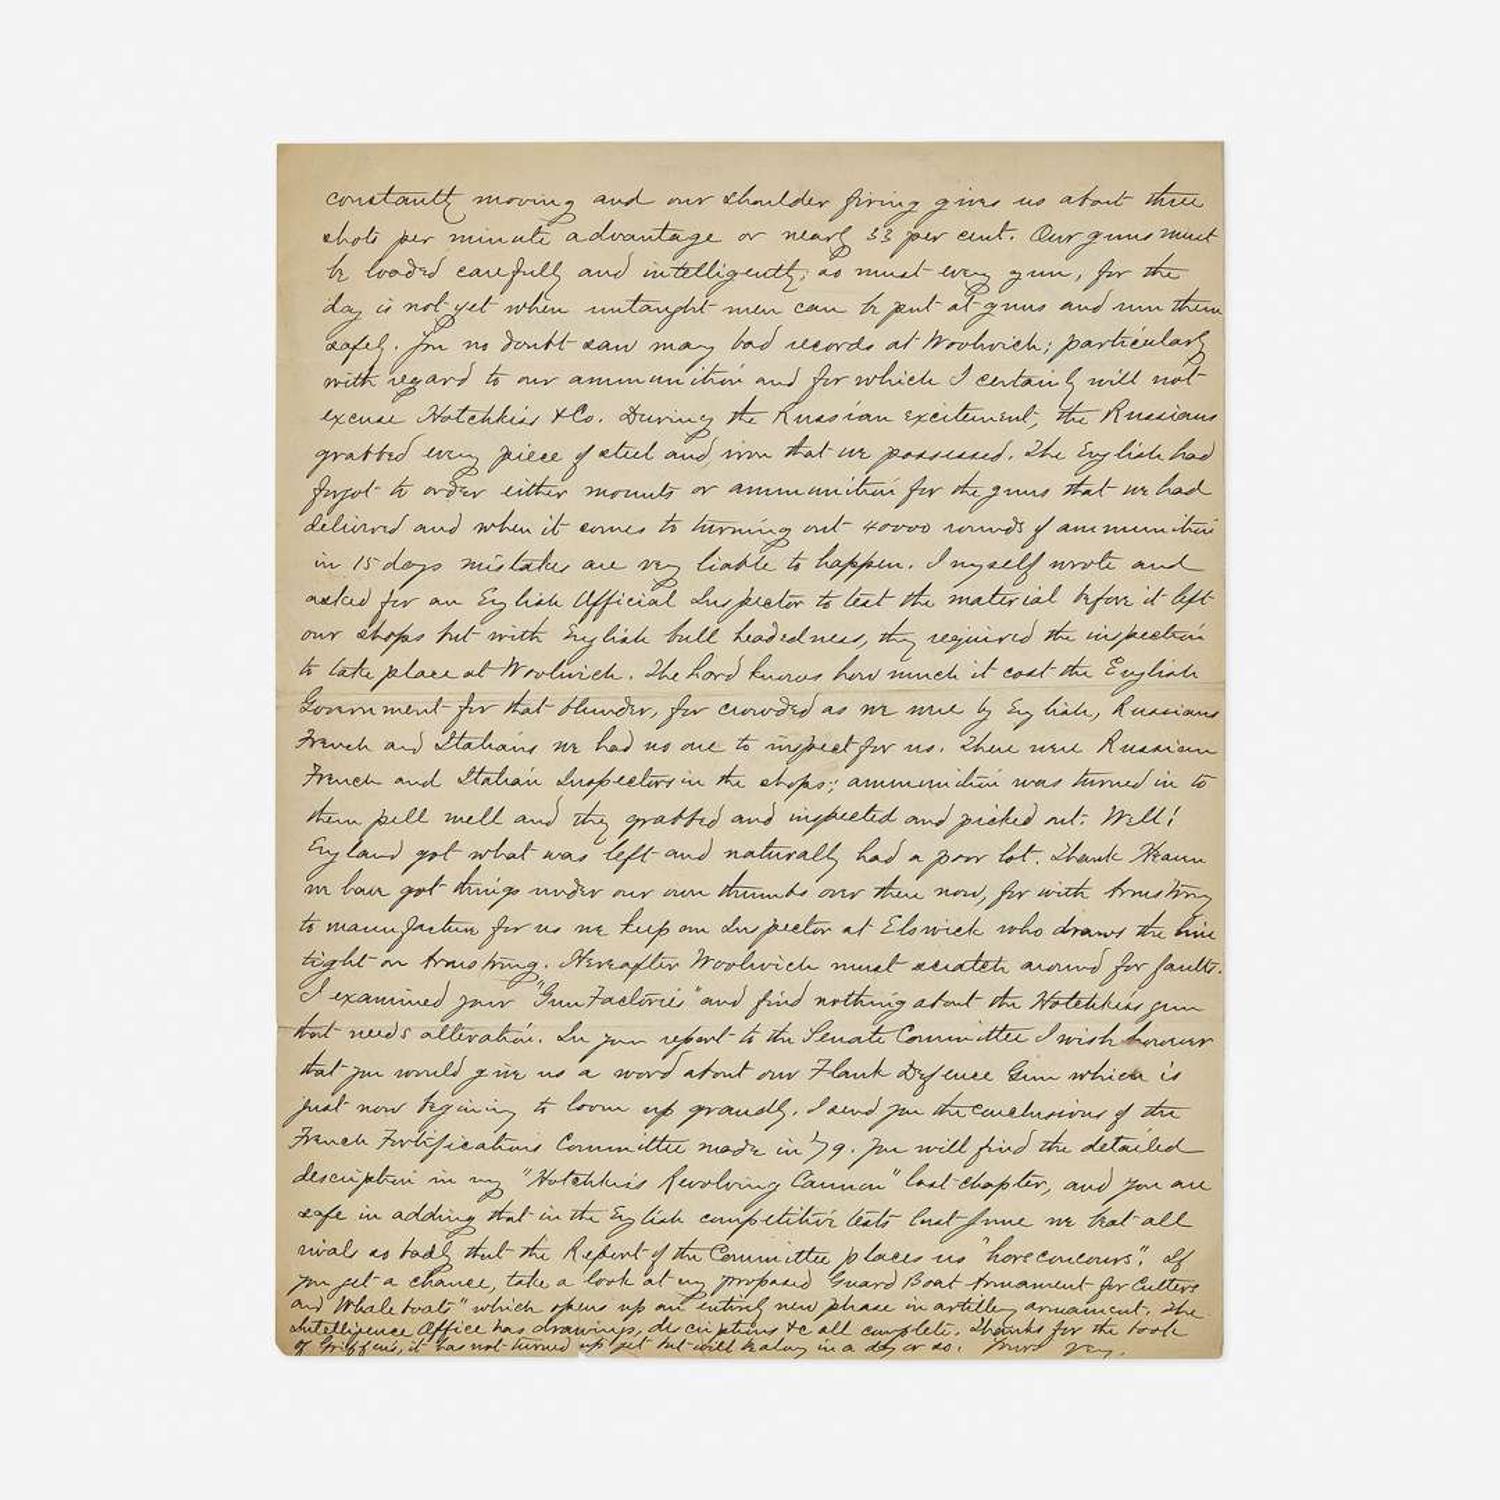 constantly moving and our shoulder firing gives us about three
shots per minute advantage or nearly 33 per cent. Our guns must
be loaded carefully and intelligently, as must every gun, for the
day is not yet when untaught men can be put at guns and run them
safely. You no doubt saw many bad records at Woolwich; particularly
with regard to our ammunition and for which I certainly will not
excuse Hotchkiss & Co. During the Russian excitement, the Russians
grabbed every piece of steel and iron that we possessed. The English had
forgot to order either mounts or ammunition for the guns that we had
delivered and when it comes to turning out 40000 rounds of ammunition
in 15 days mistakes are very liable to happen. I myself wrote and
asked for an English Official Inspector to test the material before it left
our shops but with English bull headedness, they required the inspection
to take place at Woolwich. The Lord knows how much it cost the English
Government for that blunder, for crowded as we were by English, Russians
French and Italians we had no one to inspect for us. There were Russian
French and Italian Inspectors in the shops; ammunition was turned in to
them pell mell and they grabbed and inspected and picked out. Well!
England got what was left and naturally had a poor lot. Thank Heaven
we have got things under our own thumbs over there now, for with Armstrong
to manufacture for us we keep an Inspector at Elswick who draws the line
tight on Armstrong. Hereafter Woolwich must scratch around for faults.
I examined your "Gun Factories" and find nothing about the Hotchkiss gun
that needs alteration. In your report to the Senate Committee I wish however
that you would give us a word about our Flank Defence Gun which is
just now begining to loom up grandly. I send you the conclusions of the
French Fortifications Committee made in '79. You will find the detailed
description in my "Hotchkiss Revolving Cannon" last chapter, and you are
safe in adding that in the English competitive tests last June we beat all
rivals so badly that the Report of the Committee places us "hors concours". If
you get a chance, take a look at my proposed "Guard Boat Armament for Cutters
and Whaleboats" which opens up an entirely new phase in artillery armament. The
Intelligence Office has drawings, descriptions &c all complete. Thanks for the book
of Griffins, it has not turned up yet but will be along in a day or so. Yours very.